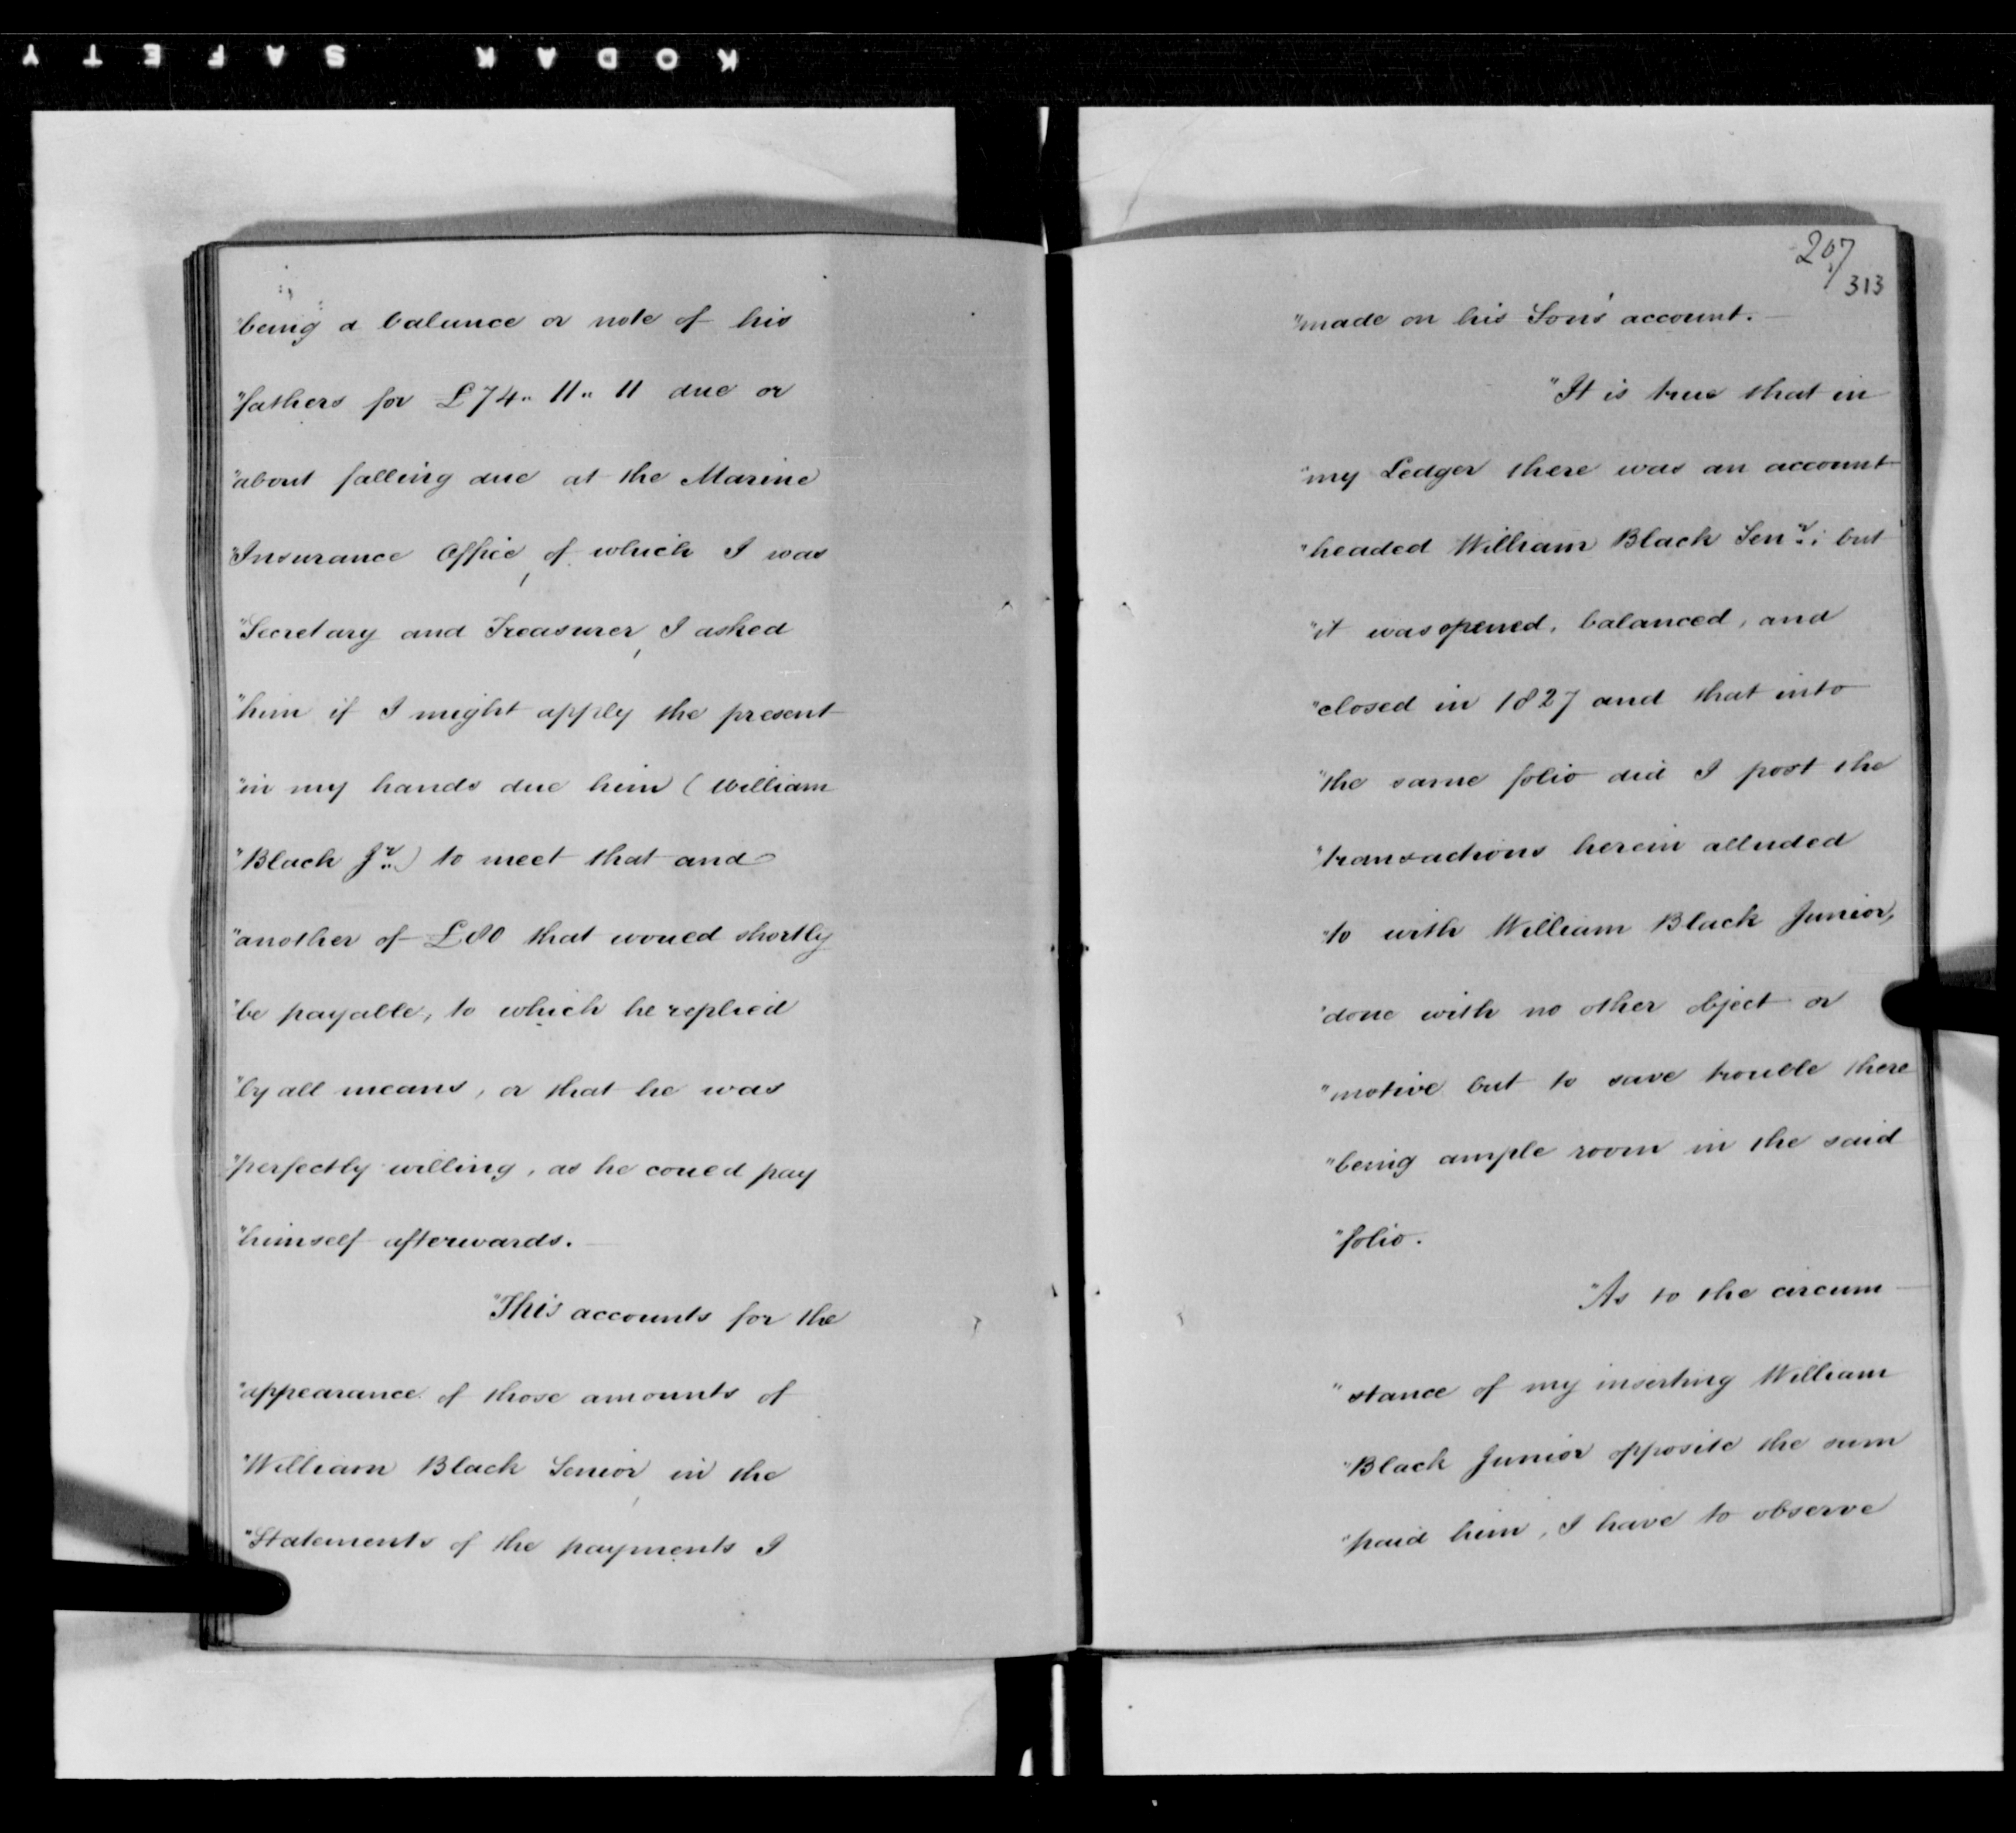 KODAK SAFETY
"being a balance or note of his
"fathers for £74.. 11.. 11 due or
"about falling due at the Marine
"Insurance Office, of which I was
"Secretary and Treasurer, I asked
"him if I might apply the present
"in my hands due him (William
"Black Jr.) to meet that and
"another of £80 that would shortly
"be payable, to which he replied
"by all means, or that he was
"perfectly willing, as he could pay
"himself afterwards.
"This accounts for the
"appearance of those amounts of
"William Black Senior, in the
"Statements of the payments I
207/
313
"made on his Son's account.
"It is true that in
"my Ledger there was an account
"headed William Black Senr.; but
"it was opened, balanced, and
"closed in 1827 and that into
"the same folio did I post the
"transactions herein alluded
"to with William Black Junior,
"done with no other object or
"motive but to save trouble there
"being ample room in the said
"folio.
"As to the circum-
"stance of my inserting William
"Black Junior opposite the sum
"paid him, I have to observe